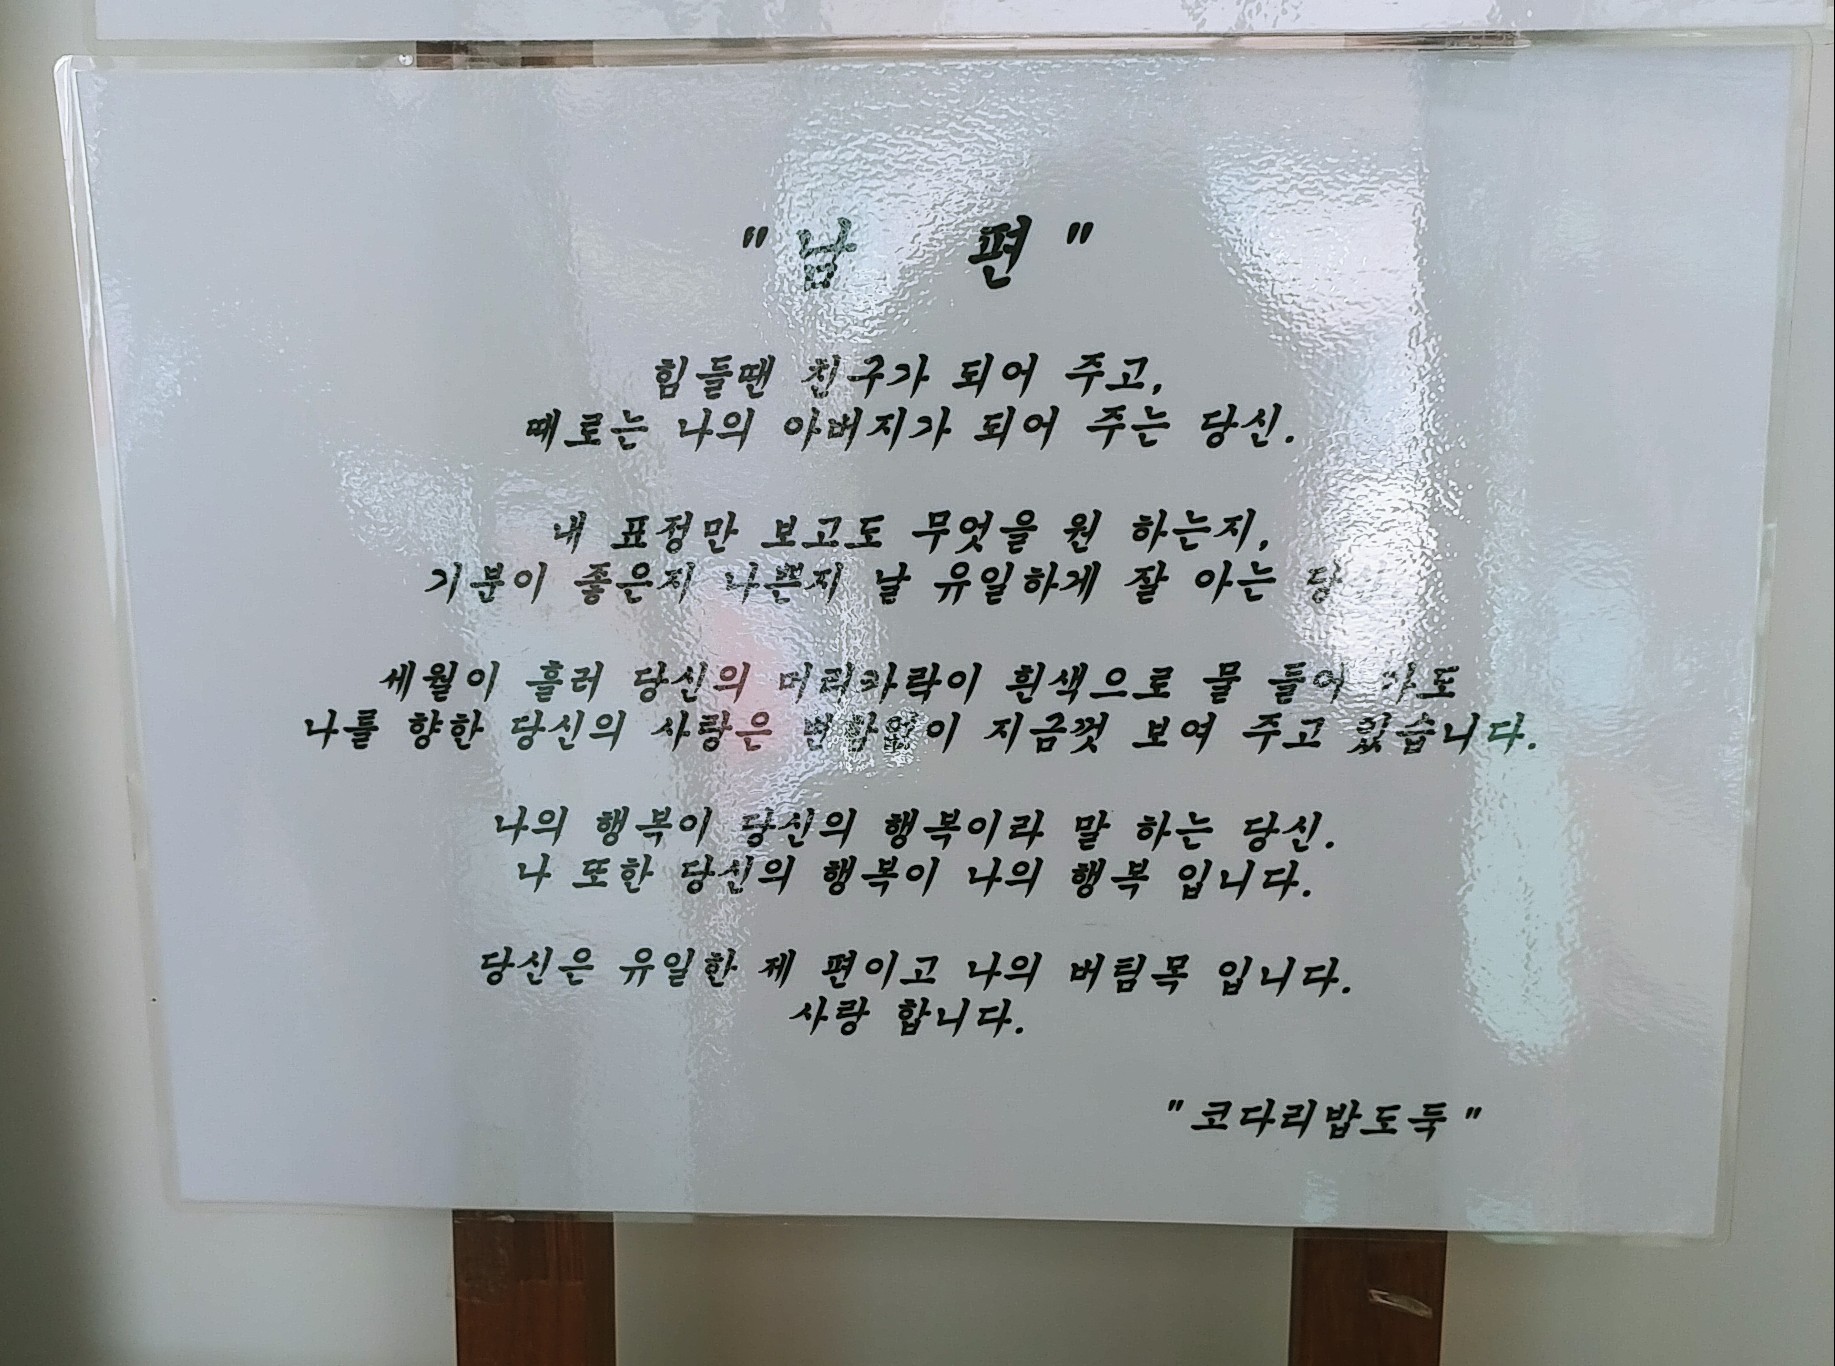 "남 편"
힘들땐 친구가 되어 주고,
때로는 나의 아버지가 되어 주는 당신.
내 표정만 보고도 무엇을 원 하는지,
기분이 좋은지 나쁜지 날 유일하게 잘 아는
세월이 흘러 당신의 머리카락이 흰색으로 물 들어 가도
나를 향한 당신의 사랑은 변함없이 지금껏 보여 주고 있습니다.
나의 행복이 당신의 행복이라 말 하는 당신.
나 또한 당신의 행복이 나의 행복 입니다.
당신은 유일한 제 편이고 나의 버팀목 입니다.
사랑 합니다.
"코다리밥도둑"